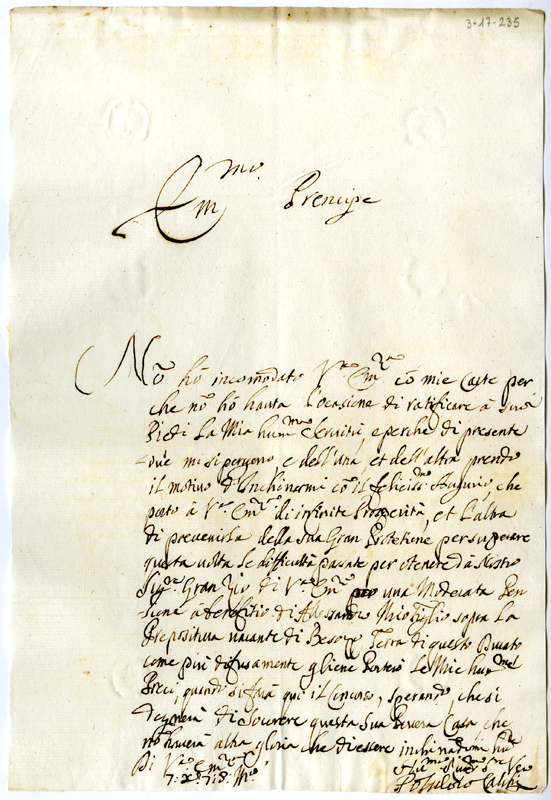 3-17-235
Em.mo Prencipe
Nõ hò incomodato V.ra Em.za cõ mie Carte per
che nõ hò hauta l'ocasione di ratificare à suoi
Piedi La Mia hum.ma Seruitù, e perche di presente
due mi si pergono, e dell'una, et dell'altra prendo
il motiuo d'Inchinarmi cõ il feliciss.mo Augurio, che
porto à V.ra Em.za di infinite Prosperità, et L'alba
di preuenirla della sua Gran Protetione per superare
questa uolta le difficultà pasate per otenere dà Nostro
Sig.re Gran Zio di V.ra Em.za una Moderata Pen
sione à benefitio di Alessandro Mio Figlio sopra La
Prepositura uacante di Terra di questo Ducato
come più difusamente gliene Porterà le Mie hum.me
Preci, quando si farà qui il Concorso, sperando, che si
degnerà di Socorere questa Sua Pouera Casa, che
nõ hauerà altra gloria che di essere
Di V.ra Em.za